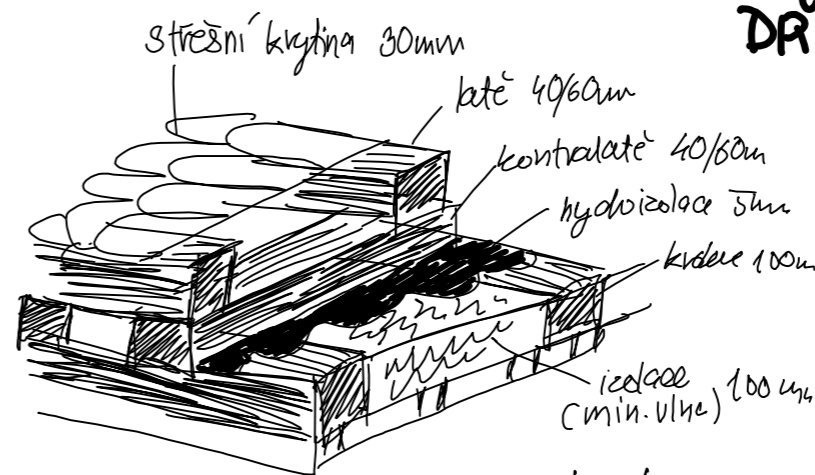 střešní krytina 30mm
DŘ
latě 40/60mm
kontralatě 40/60m
hydroizolace 5mm
krokve 100m
izolace
(min. vlna) 100 mm